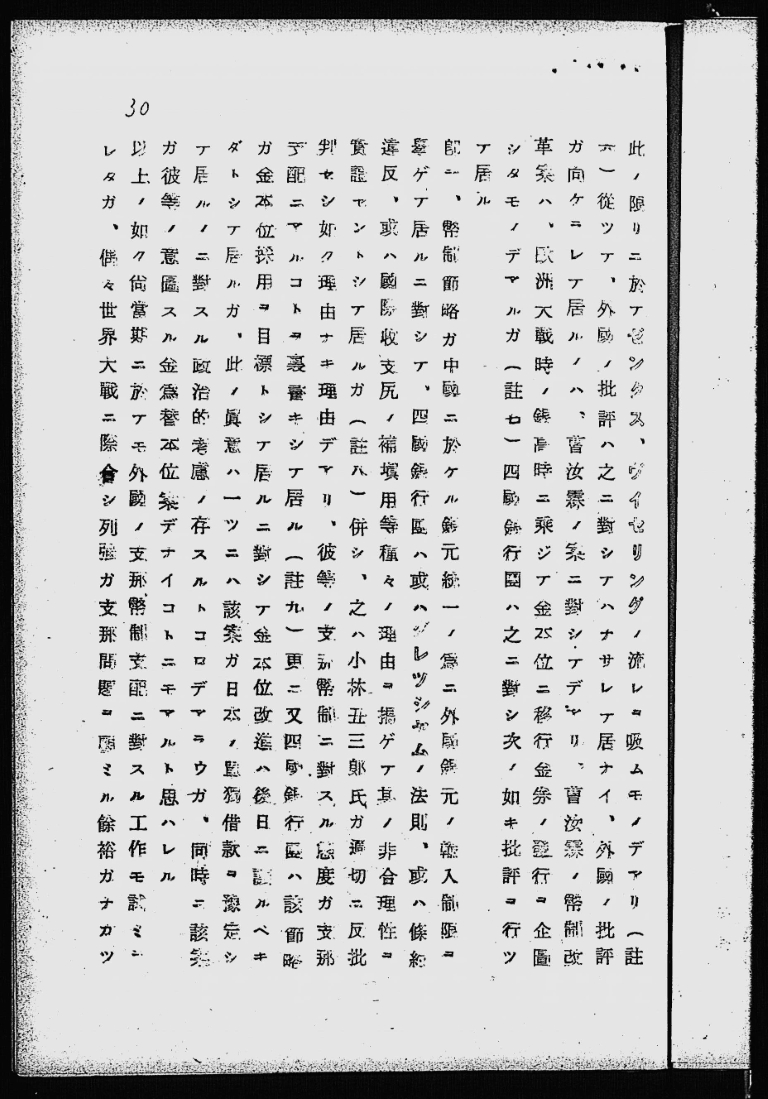 30
此ノ限リニ於テゼンクス、ヴイセリングノ流レヲ吸ムモノデアリ(註
六)從ツテ、外國ノ批評ハ之ニ對シテハナサレテ居ナイ、外國ノ批評
ガ向ケラレテ居ルノハ、曹汝霖ノ案ニ對シテデアリ、曹汝霖ノ幣制改
革案ハ、歐洲大戰時ノ銀高時ニ乘ジテ金本位ニ移行金券ノ發行ヲ企圖
シタモノデアルガ(註七)四國銀行團ハ之ニ對シ次ノ如キ批評ヲ行ツ
テ居ル
卽ニ、幣制節略ガ中國ニ於ケル銀元統一ノ爲ニ外國銀元ノ輸入制限ヲ
擧ゲテ居ルニ對シテ、四國銀行團ハ或ハグレツシャムノ法則、或ハ條約
違反、或ハ國際收支尻ノ補塡用等種々ノ理由ヲ揭ゲテ其ノ非合理性ヲ
實證セントシテ居ルガ(註八)併シ、之ハ小林丑三郞氏ガ適切ニ反批
判セシ如ク理由ナキ理由デアリ、彼等ノ支那幣制ニ對スル態度ガ支那
支配ニアルコトヲ裏書キシテ居ル(註九)更ニ又四國銀行團ハ該節略
ガ金本位採用ヲ目標トシテ居ルニ對シテ金本位改造ハ後日ニ讓ルベキ
ダトシテ居ルガ、此ノ眞意ハ一ツニハ該案ガ日本ノ單獨借款ヲ豫定シ
テ居ルノニ對スル政治的考慮ノ存スルトコロデアラウガ、同時ニ該案
ガ彼等ノ意圖スル金爲替本位案デナイコトニモアルト思ハレル
以上ノ如ク尙當期ニ於テモ外國ノ支那幣制支配ニ對スル工作モ試ミラ
レタガ、偶々世界大戰ニ際會シ列强ガ支那問題ヲ顧ミル餘裕ガナカツ